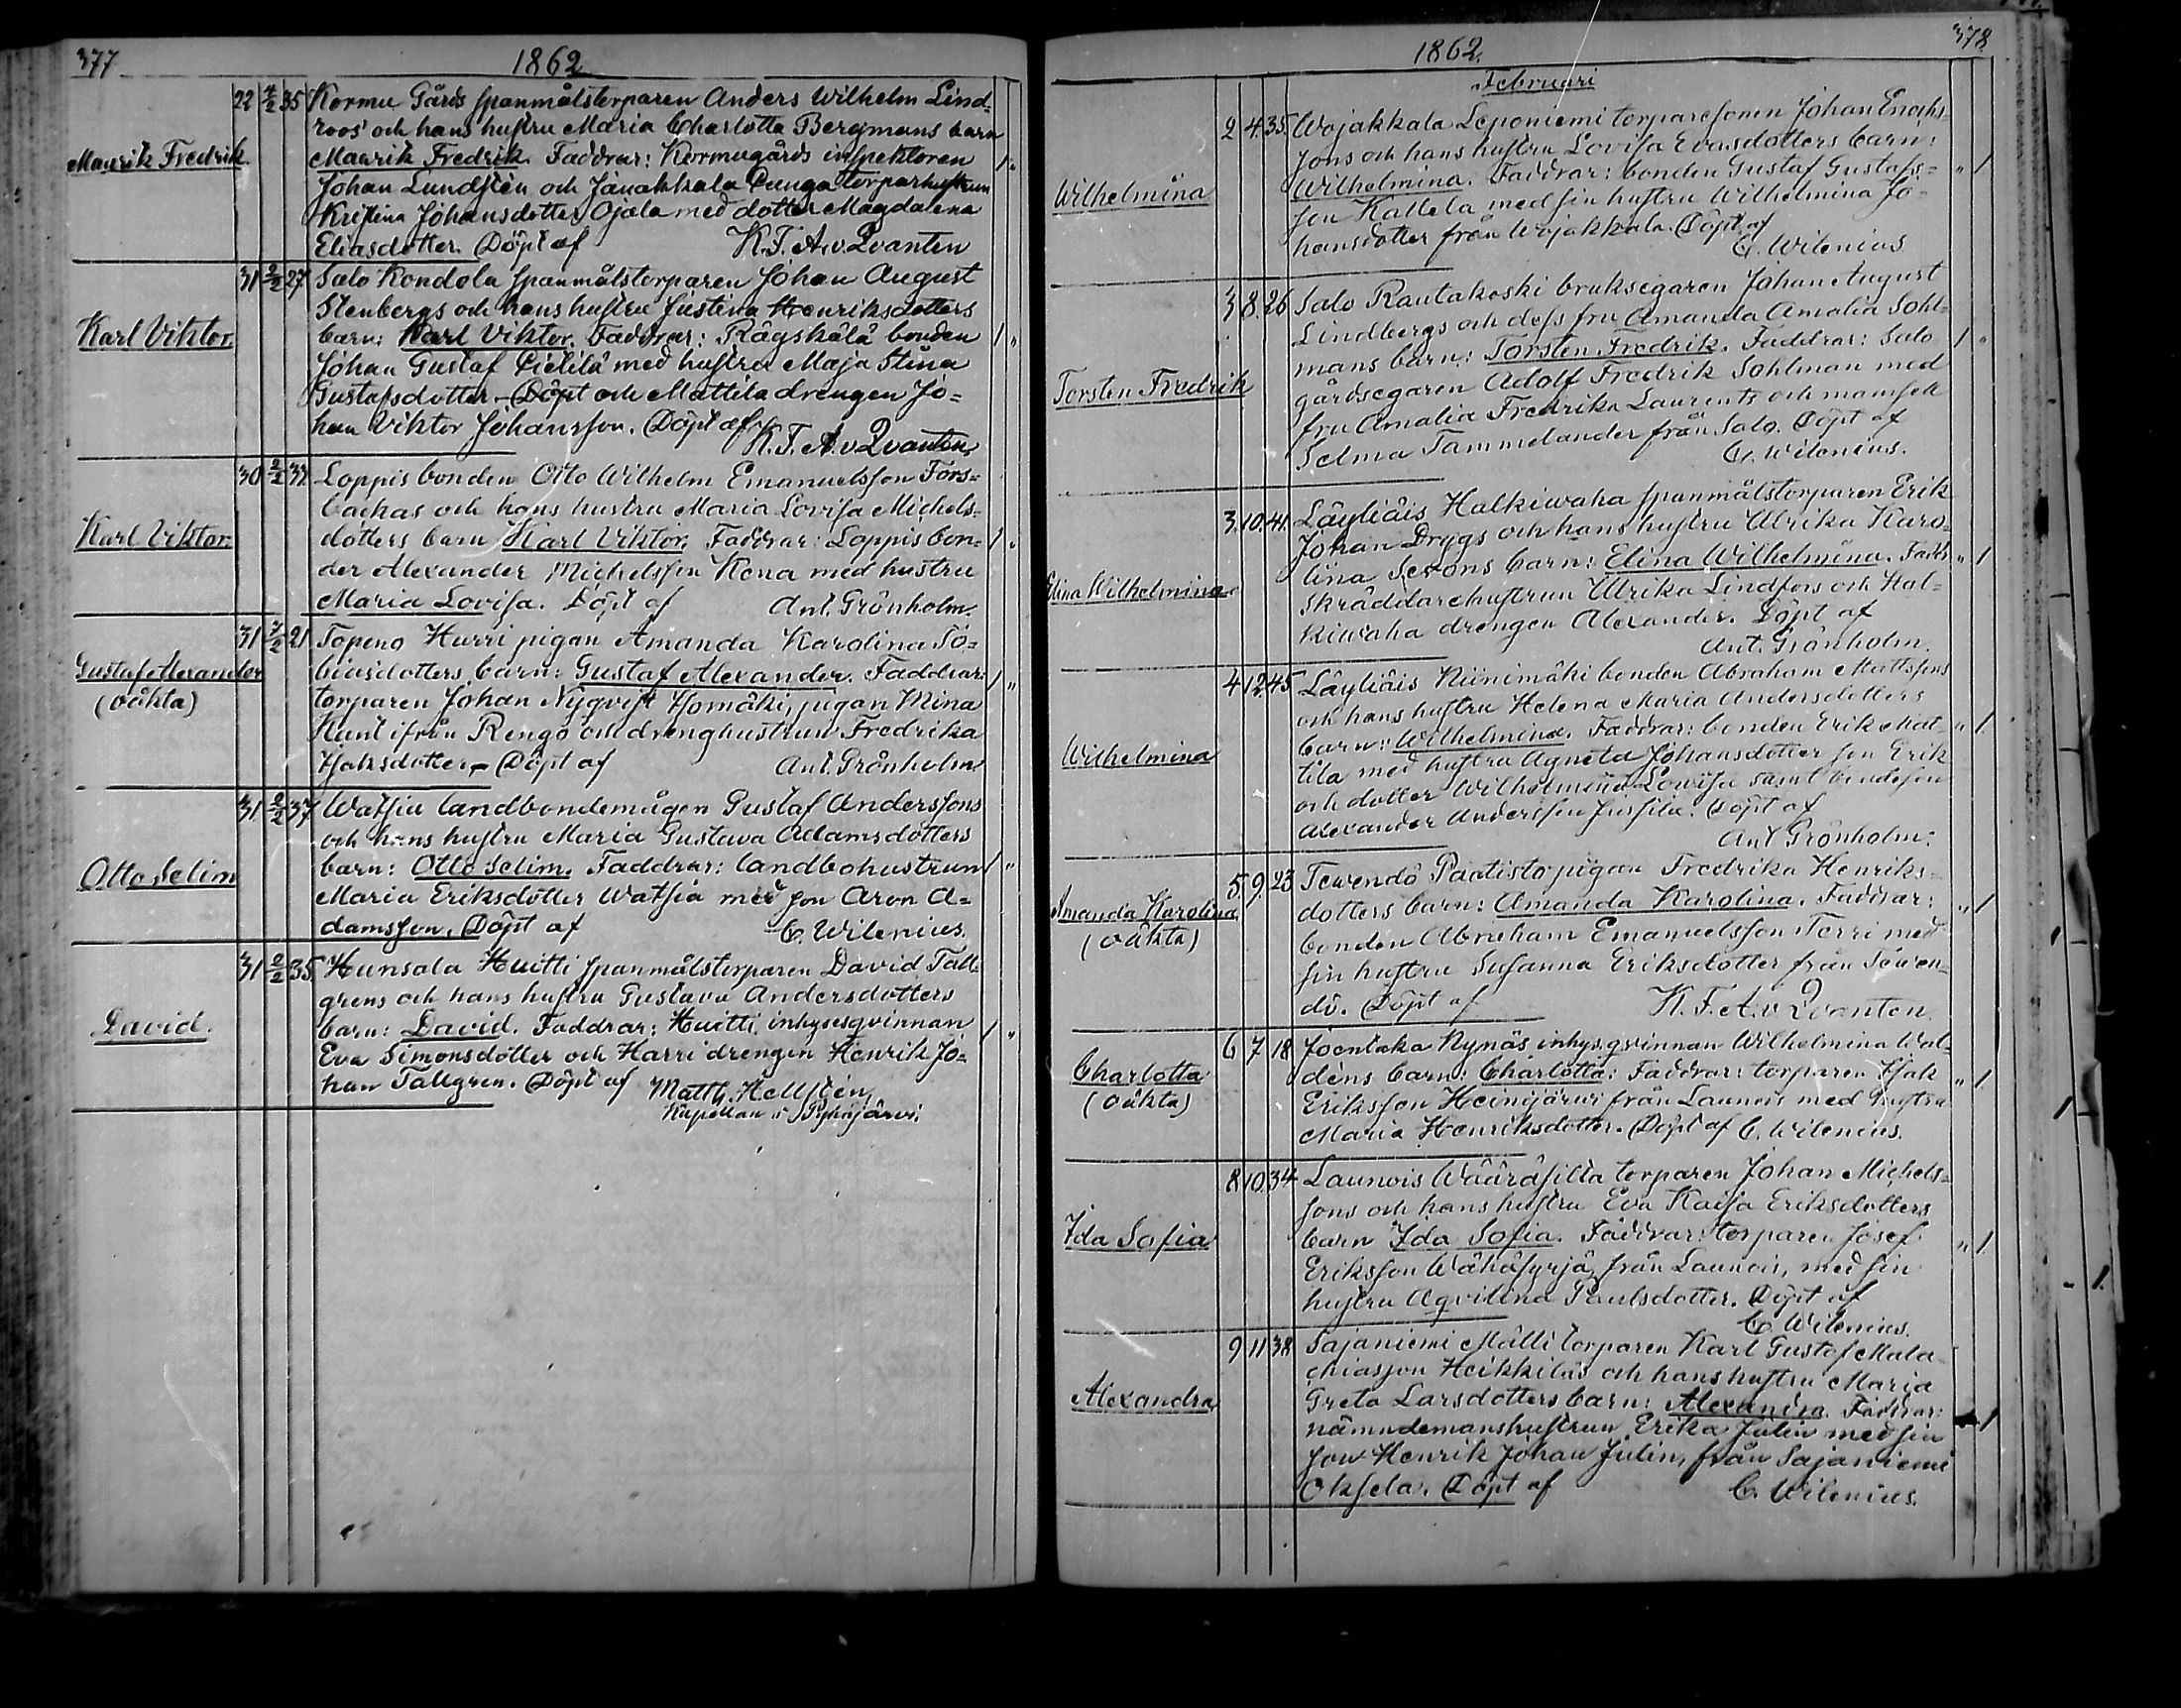 377
1862
Maurik Fredrik.
22 4/2 35 Kormu Gårds spanmålstorparen Anders Wilhelm Lind-
roos' och hans hustru Maria Charlotta Bergmans barn
Maurik Fredrik. Faddrar: Kormugårds inspektoren 1 "
Johan Lundstén och Janakkala Punga torparhustrun
Kristina Johansdotter Ojala med dotter Magdalena
Eliasdotter. Döpt af K.F.A.v.Qvanten
Karl Viktor.
31 2/2 27 Salo Kondola spanmålstorparen Johan August
Stenbergs och hans hustru Justina Henriksdotters
barn: Karl Viktor. Faddrar: Rågskälä bonden 1 "
Johan Gustaf Pietilä med hustru Maja Stina
Gustafsdotter – Döpt och Mattila drengen Jo=
han Viktor Johansson. Döpt af
K.F.A.v.Qvanten
Karl Viktor.
30 2/2 32 Loppis bonden Otto Wilhelm Emanuelsson Fors=
backas och hans hustru Maria Lovisa Michels-
dotters barn Karl Viktor. Faddrar: Loppis bon- 1 "
der Alexander Michelsson Kena med hustru
Maria Lovisa. Döpt af Ant. Grönholm.
Gustaf Alexander
(oäkta)
31 7/2 21 Topeno Hurri pigan Amanda Karolina To=
biasdotters barn: Gustaf Alexander. Faddrar: 1 "
torparen Johan Nyqvist Isomäki, pigan Mina
Kunt ifrån Rengo och drenghustrun Fredrika
Isaksdotter – Döpt af Ant. Grönholm
Otto Selim
31 2/2 37 Watsia landbondemågen Gustaf Anderssons
och hans hustru Maria Gustava Adamsdotters
barn: Otto Selim. Faddrar: landbohustrun 1 "
Maria Eriksdotter Watsia med son Aron A=
damsson. Döpt af C. Wilenius.
David.
31 2/2 35. Hunsala Huitti spanmålstorparen David Tall-
grens och hans hustru Gustava Andersdotters
barn: David. Faddrar: Huitti inhysesqvinnan 1 "
Eva Simonsdotter och Harri drengen Henrik Jo-
han Tallgren. Döpt af Matth. Hellstén,
Kapellan i Pyhäjärvi.
378
1862.
Februari
Wilhelmina
2 4. 35. Wojakkala Leponiemi torparesonen Johan Enochs-
sons och hans hustru Lovisa Evasdotters barn:
Wilhelmina. Faddrar: bonden Gustaf Gustafs= " 1
son Kallela med sin hustru Wilhelmina Jo-
hansdotter från Wojakkala. Döpt af
C. Wilenius
Torsten Fredrik
3 8. 26 Salo Rautakoski bruksegaren Johan August
Lindbergs och dess fru Amanda Amalia Sohl-
mans barn: Torsten Fredrik. Faddrar: Salo 1 "
gårdsegaren Adolf Fredrik Sohlman med
fru Amalia Fredrika Laurents och mamsell
Selma Tammelander från Salo. Döpt af
C. Wilenius.
Elina Wilhelmina
3. 10. 41. Läyliäis Halkiwaha spanmålstorparen Erik
Johan Drygs och hans hustru Ulrika Karo-
lina Serons barn: Elina Wilhelmina. Fadd: " 1
skräddarehustrun Ulrika Lindfors och Hal-
kiwaha drengen Alexander. Döpt af
Ant. Grönholm.
Wilhelmina
4 12. 45 Läyliäis Niinimäki bonden Abraham Mattssons
och hans hustru Helena Maria Andersdotters
barn: Wilhelmina. Faddrar: bonden Erik Mat- " 1.
tila med hustru Agneta Johansdotter son Erik
och dotter Wilhelmina Lovisa samt bondeson
Alexander Andersson Jussila. Döpt af
Ant Grönholm.
Amanda Karolina
(oäkta)
5. 9. 23 Tewendö Paatisto pigan Fredrika Henriks-
dotters barn: Amanda Karolina. Faddrar: " 1
bonden Abraham Emanuelsson Torri med
sin hustru Susanna Eriksdotter från Tewen-
dö. Döpt af K.F.A.v Qvanten.
Charlotta
(oäkta)
6 7 18 Joentaka Nynäs inhys.qvinnan Wilhelmina Wal-
déns barn: Charlotta: Faddrar: torparen Isak " 1
Eriksson Heinijärwi från Launois med hustru
Maria Henriksdotter. Döpt af C. Wilenius.
Ida Sofia
8 10. 34 Launois Wääräsilta torparen Johan Michels-
sons och hans hustru Eva Kaisa Eriksdotters
barn Ida Sofia. Faddrar: torparen Josef " 1.
Eriksson Wähäsyrjä, från Launois, med sin
hustru Aqvilina Paulsdotter. Döpt af
C. Wilenius.
Alexandra
9 11 38 Sajaniemi Mälli torparen Karl Gustaf Mala-
chiasson Heikkiläs och hans hustru Maria
Greta Larsdotters barn: Alexandra. Faddrar: 1
nämndemanshustrun Erika Julin med sin
son Henrik Johan Julin, från Sajaniemi
Oksela. Döpt af C. Wilenius.